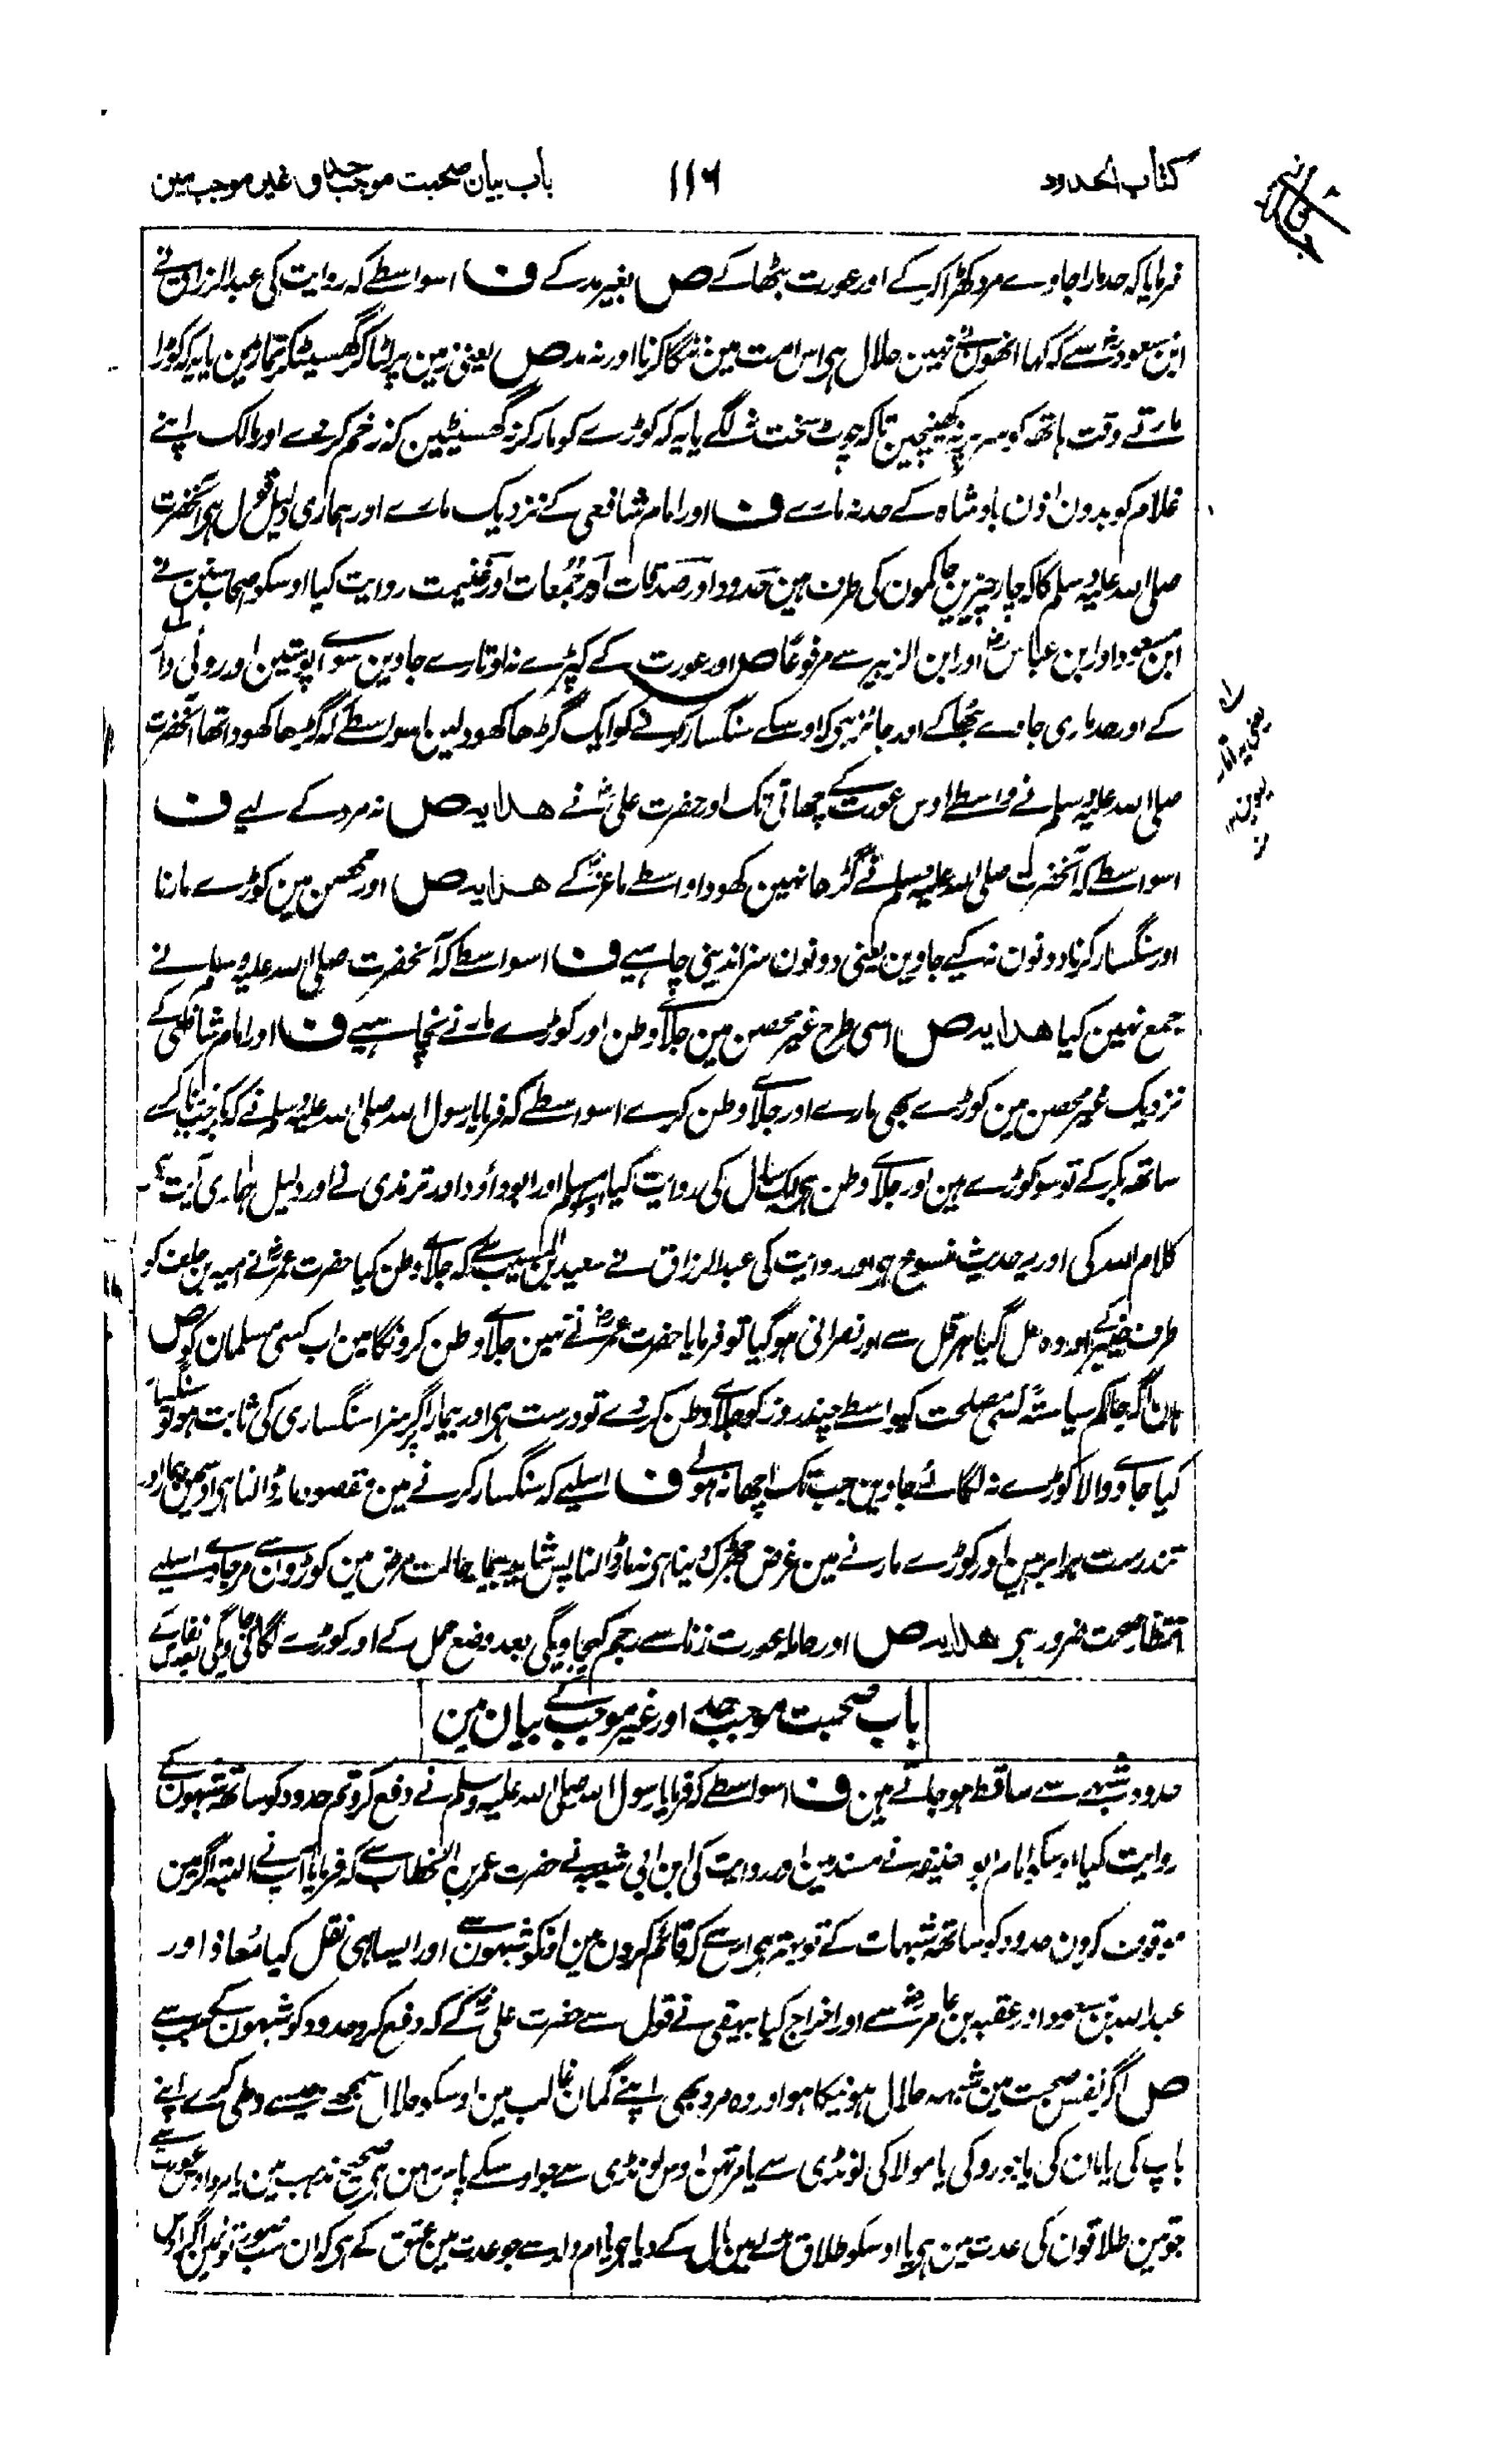 کتاب الحدود
۱۱۶
باب بیان صحبت موجب حد و غیر موجب مین
فرمایا کہ حد مارا جاوے مرد کھڑا کرکے اور عورت بٹھا کے ص بغیر مد کے ف اسواسطے کہ روایت کی عبد الرزاق نے
ابن مسعودؓ سے کہ کہا انھون نے نہین حلال ہی اس امت مین ننگا کرنا اور نہ مد ص یعنی زمین پر لٹا کر گھسیٹکر نمارین یا یہ کہ کوڑا
مارتے وقت ہاتھ کو سر پر نہ کھینچین تاکہ چوٹ سخت نہ لگے یا یہ کہ کوڑے کو مار کر نہ گھسیٹین کہ زخم کردے اور مالک اپنے
غلام کو بدون اذن بادشاہ کے حد نہ مارے ف اور امام شافعی کے نزدیک مارے اور ہماری دلیل قول ہی آنحضرت
صلی اللہ علیہ وسلم کا کہ چار چیزین حاکمون کی طرف ہین حدود اور صدقات اور جمعات اور غنیمت روایت کیا اوسکو صحاب سنن نے
ابن مسعود اور ابن عباسؓ اور ابن الزبیر سے مرفوعًا ص اور عورت کے کپڑے نہ اوتارے جاوین سوائے پوستین اور روئی دار
کے اور حد ماری جاوے بٹھا کے اور جائز ہی کہ اوسکے سنگسار کرنے کو ایک گڑھا کھود لین اسواسطے کہ گڑھا کھودا تھا آنحضرت
صلی اللہ علیہ وسلم نے واسطے اوس عورت کے چھاتی تک اور حضرت علیؓ نے ھدایہ ص نہ مرد کے لیے ف
اسواسطے کہ آنحضرت صلی اللہ علیہ وسلم نے گڑھا نہین کھودا واسطے ماعزؓ کے ھدایہ ص اور محصن مین کوڑے مارنا
اور سنگسار کرنا دونون نہ کیے جاوین یعنی دونون سزا ندینی چاہیے ف اسواسطے کہ آنحضرت صلی اللہ علیہ وسلم نے
جمع نہین کیا ھدایہ ص اسی طرح غیر محصن مین جلاے وطن اور کوڑے مارنے نچاہیے ف اور امام شافعی کے
نزدیک غیر محصن مین کوڑے بھی مارے اور جلاے وطن کرے اسواسطے کہ فرمایا رسول اللہ صلی اللہ علیہ وسلم نے کہ بکر جب زنا کرے
ساتھ بکر کے تو سو کوڑے ہین اور جلاے وطن ہی ایک سال کی روایت کیا اسکو مسلم اور ابو داؤد اور ترمذی نے اور دلیل ہماری آیت ہی
کلام اللہ کی اور یہ حدیث منسوخ ہی اور روایت کی عبد الرزاق نے سعید بن المسیب سے کہ جلاے وطن کیا حضرت عمرؓ نے امیہ بن خلف کو
طرف خیبر کے اور وہ مل گیا ہرقل سے اور نصرانی ہوگیا تو فرمایا حضرت عمرؓ نے نہین جلاے وطن کرونگا مین اب کسی مسلمان کو ص
ہان اگر حاکم سیاسۃً کسی مصلحت کیواسطے چند روز کو جلاے وطن کردے تو درست ہی اور بیمار اگر سزا سنگساری کی ثابت ہو تو سنگسار
کیا جاوے والا کوڑے نہ لگائے جاوین جب تک اچھا نہ ہولے ف اسلیے کہ سنگسار کرنے مین مقصود مار ڈالنا ہی اوسمین بیمار اور
تندرست برابر ہین اور کوڑے مارنے مین غرض جھڑک دینا ہی نہ مار ڈالنا پس شاید بیمار حالت مرض مین کوڑون سے مر جاوے اسلیے
انتظار صحت ضرور ہی ھدایہ ص اور حاملہ عورت زنا سے رجم کیجاویگی بعد وضع حمل کے اور کوڑے لگائی جاویگی بعد نفاس کے
باب صحبت موجب حد اور غیر موجب کے بیان مین
حدود شبہے سے ساقط ہوجاتے ہین ف اسواسطے کہ فرمایا رسول اللہ صلی اللہ علیہ وسلم نے دفع کرو تم حدود کو ساتھ شبہون کے
روایت کیا اوسکو امام ابو حنیفہ نے مسند مین اور روایت کی ابن ابی شیبہ نے حضرت عمر بن الخطاب سے کہ فرمایا آپ نے البتہ اگر مین
موقوف کرون حدود کو ساتھ شبہات کے تو بہتر ہی اس سے کہ قائم کرون مین اونکو شبہون سے اور ایسا ہی نقل کیا معاذ اور
عبد اللہ بن مسعود اور عقبہ بن عامرؓ سے اور اخراج کیا بیہقی نے قول سے حضرت علیؓ کے کہ دفع کرو حدود کو شبہون کے سبب سے
ص اگر نفس صحبت مین شبہہ حلال ہونیکا ہو اور وہ مرد بھی اپنے گمان غالب مین اوسکو حلال سمجھے جیسے وطی کرے اپنے
باپ کی یا مان کی یا جورو کی یا مولا کی لونڈی سے یا مرتہن اوس لونڈی سے جو اوسکے پاس رہن ہی صحیح مذہب مین یا مرد اوس عورت سے
جو تین طلاقون کی عدت مین ہی یا اوسکو طلاق بدلے مین مال کے دیا ہی یا ام ولد سے جو عدت مین عتق کے ہی کہ ان سب صورتونمین اگر اوس
یعنی یہ آثار